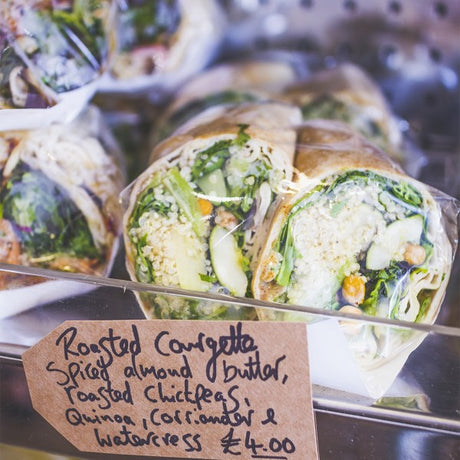 Roasted Courgette
Spicy almond butter,
roasted Chickpeas,
Quinoa, corriander &
Watercress £4.00